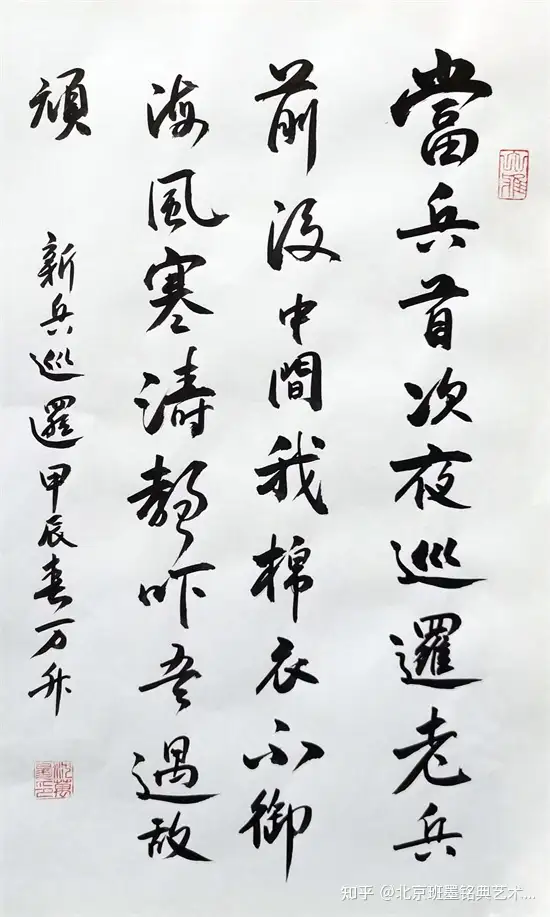 當兵首次夜巡邏老兵
前後中間我棉衣不御
海風寒涛聲吓吾遇敌
頑
新兵巡邏甲辰春万升
大雅
知乎 @北京班墨铭典艺术...